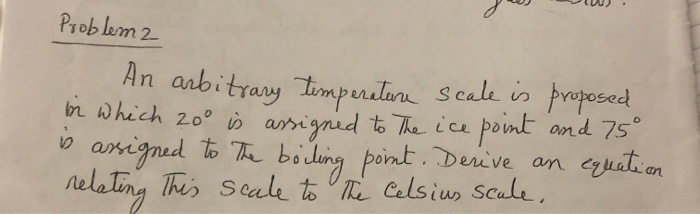 Problem 2
An arbitrary temperature scale is proposed
in which 20° is assigned to The ice point and 75°
is assigned to The boiling point. Derive an equation
relating This scale to The Celsius scale.